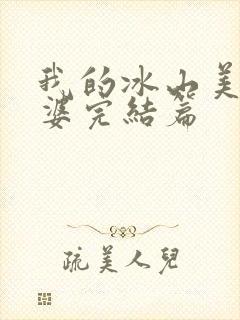 我的冰山美
婆完結篇
疏美人兒